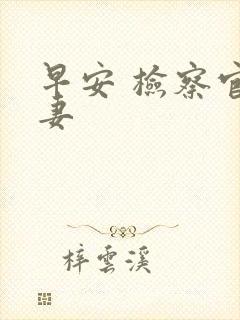 早安 檢察官
妻
梓雲溪